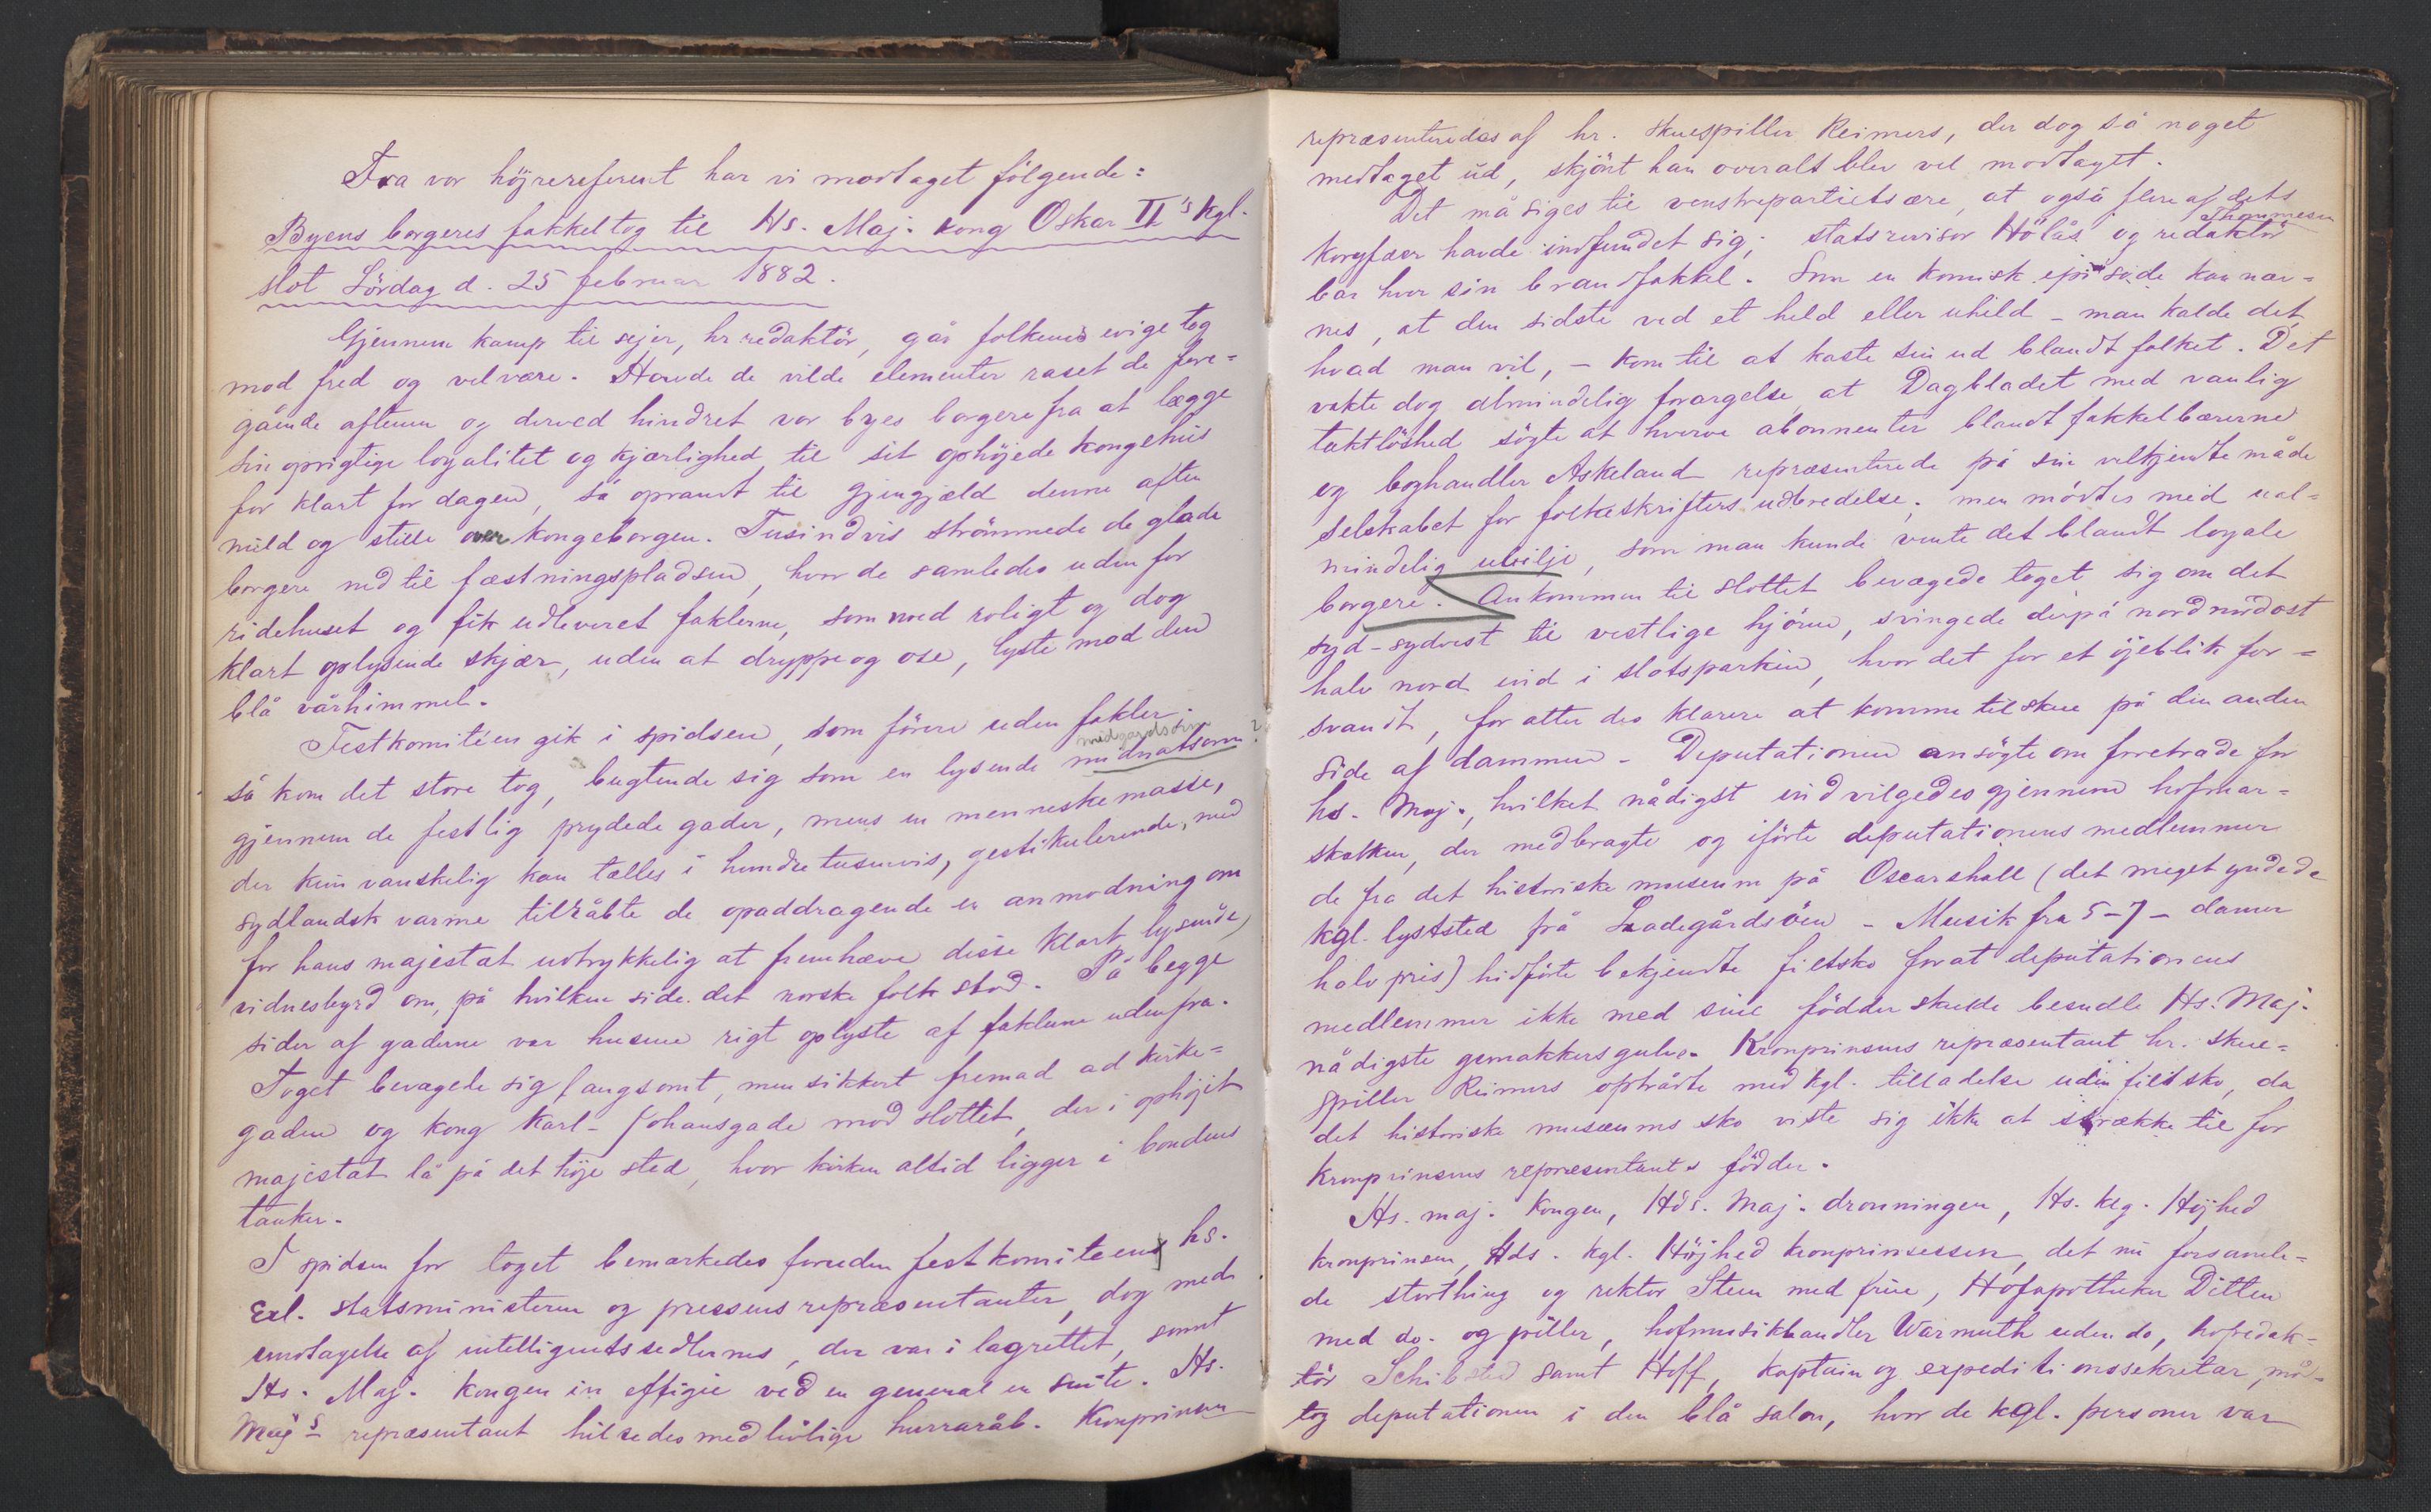 Fra vor höjrereferent har vi modtaget fölgende:
Byens borgeres fakkeltog til Hs. Maj. kong Oskar II's kgl.
slot Lördag d. 25 februar 1882.
Gjennem kamp til sejer, hr redaktör, går folkenes evige tog
mod fred og velvære. Havde de vilde elementer raset de fore=
gående aftener og derved hindret vor byes borgere fra at lægge
sin oprigtige loyalitet og kjærlighed til sit ophöjede kongehus
for klart for dagen, så oprandt til gjengjæld denne aften
mild og stille over kongeborgen. Tusindvis strömmede de glade
borgere ned til fæstningspladsen, hvor de samledes uden for
ridehuset og fik udleveret faklerne, som med roligt og dog
klart oplysende skjær, uden at dryppe og ose, lyste mod den
blå vårhimmel.
Festkomitéen gik i spidsen, som förere uden fakler.
midgardsorm
så kom det store tog, bugtende sig som en lysende midnatsorm?
gjennem de festlig prydede gader, mens en menneskemasse,
der kun vanskelig kan tælles i hundretusenvis, gestikulerende, med
sydlandsk varme tilråbte de opaddragende en anmodning om
for hans majestæt udtrykkelig at fremhæve disse klart lysende,
vidnesbyrd om, på hvilken side det norske folk stod. På begge
sider af gaderne var husene rigt oplyste af faklerne udenfra.
Toget bevægede sig langsomt, men sikkert fremad ad kirke=
gaden og kong Karl-Johansgade mod slottet, der i ophöjet
majestæt lå på det höje sted, hvor kirken altid ligger i bondens
tanker.
I spidsen for toget bemærkedes foruden festkomiteens hs.
Exl. statsministeren og pressens repræsentanter, dog med
undtagelse af intelligentssedlernes, der var i lagrettet, samt
Hs. Maj. kongen in effigie ved en general en suite. Hs.
Maj's repræsentant hilsedes med livlige hurraråb. Kronprinsen
repræsenteredes af hr. skuespiller Reimers, der dog så noget
medtaget ud, skjönt han overalt blev vel modtaget.
Det må siges til venstrepartiets ære, at også flere af dets
Thommesen
koryfæer havde indfundet sig; statsrevisor Hölås og redaktör
bar hver sin brandfakkel. Som en komisk episode kan næv=
nes, at den sidste ved et held eller uheld - man kalde det
hvad man vil, - kom til at kaste sin ud blandt folket. Det
vakte dog almindelig forargelse at Dagbladet med vanlig
taktlöshed sögte at hverve abonnenter blandt fakkelbærerne
og boghandler Askeland repræsenterede på sin velkjendte måde
selskabet for folkeskrifters udbredelse; men mödtes med ual=
mindelig uvilje, som man kunde vente det blandt loyale
borgere. Ankommen til slottet bevægede toget sig om det
syd-sydvest til vestlige hjörne, svingede derpå nordnordost
halv nord ind i slotsparken, hvor det for et öjeblik for=
svandt, for atter des klarere at komme tilskue på den anden
side af dammen - Deputationen ansögte om foretræde for
hs. Maj., hvilket nådigst indvilgedes gjennem hofmar=
skalken, der medbragte og iförte deputationens medlemmer
de fra det historiske museum på Oscarshall (det meget yndede
kgl. lyststed på Ladegårdsöen - Musik fra 5-7 - damer
halv pris) hidförte bekjendte filtsko forat deputationens
medlemmer ikke med sine födder skulde besudle Hs. Maj.
nådigste gemakkersgulve. Kronprinsens repræsentant hr. skue=
spiller Reimers optrådte med kgl. tilladelse uden filtsko, da
det historiske museums sko viste sig ikke at strække til for
kronprinsens repræsentants födder.
Hs. maj. Kongen, Hds. Maj. dronningen, Hs. kg. Höjhed
kronprinsen, Hds. kgl. Höjhed kronprinsessen, det nu forsamle=
de storthing og rektor Steen med frue, Hofapotheker Ditten
med do. og piller, hofmusikhandler Warmuth uden do, hofredak=
tör Schibsted samt Hoff, kaptain og expeditionssekretær, mod=
tog deputationen i den blå salon, hvor de kgl. personer var